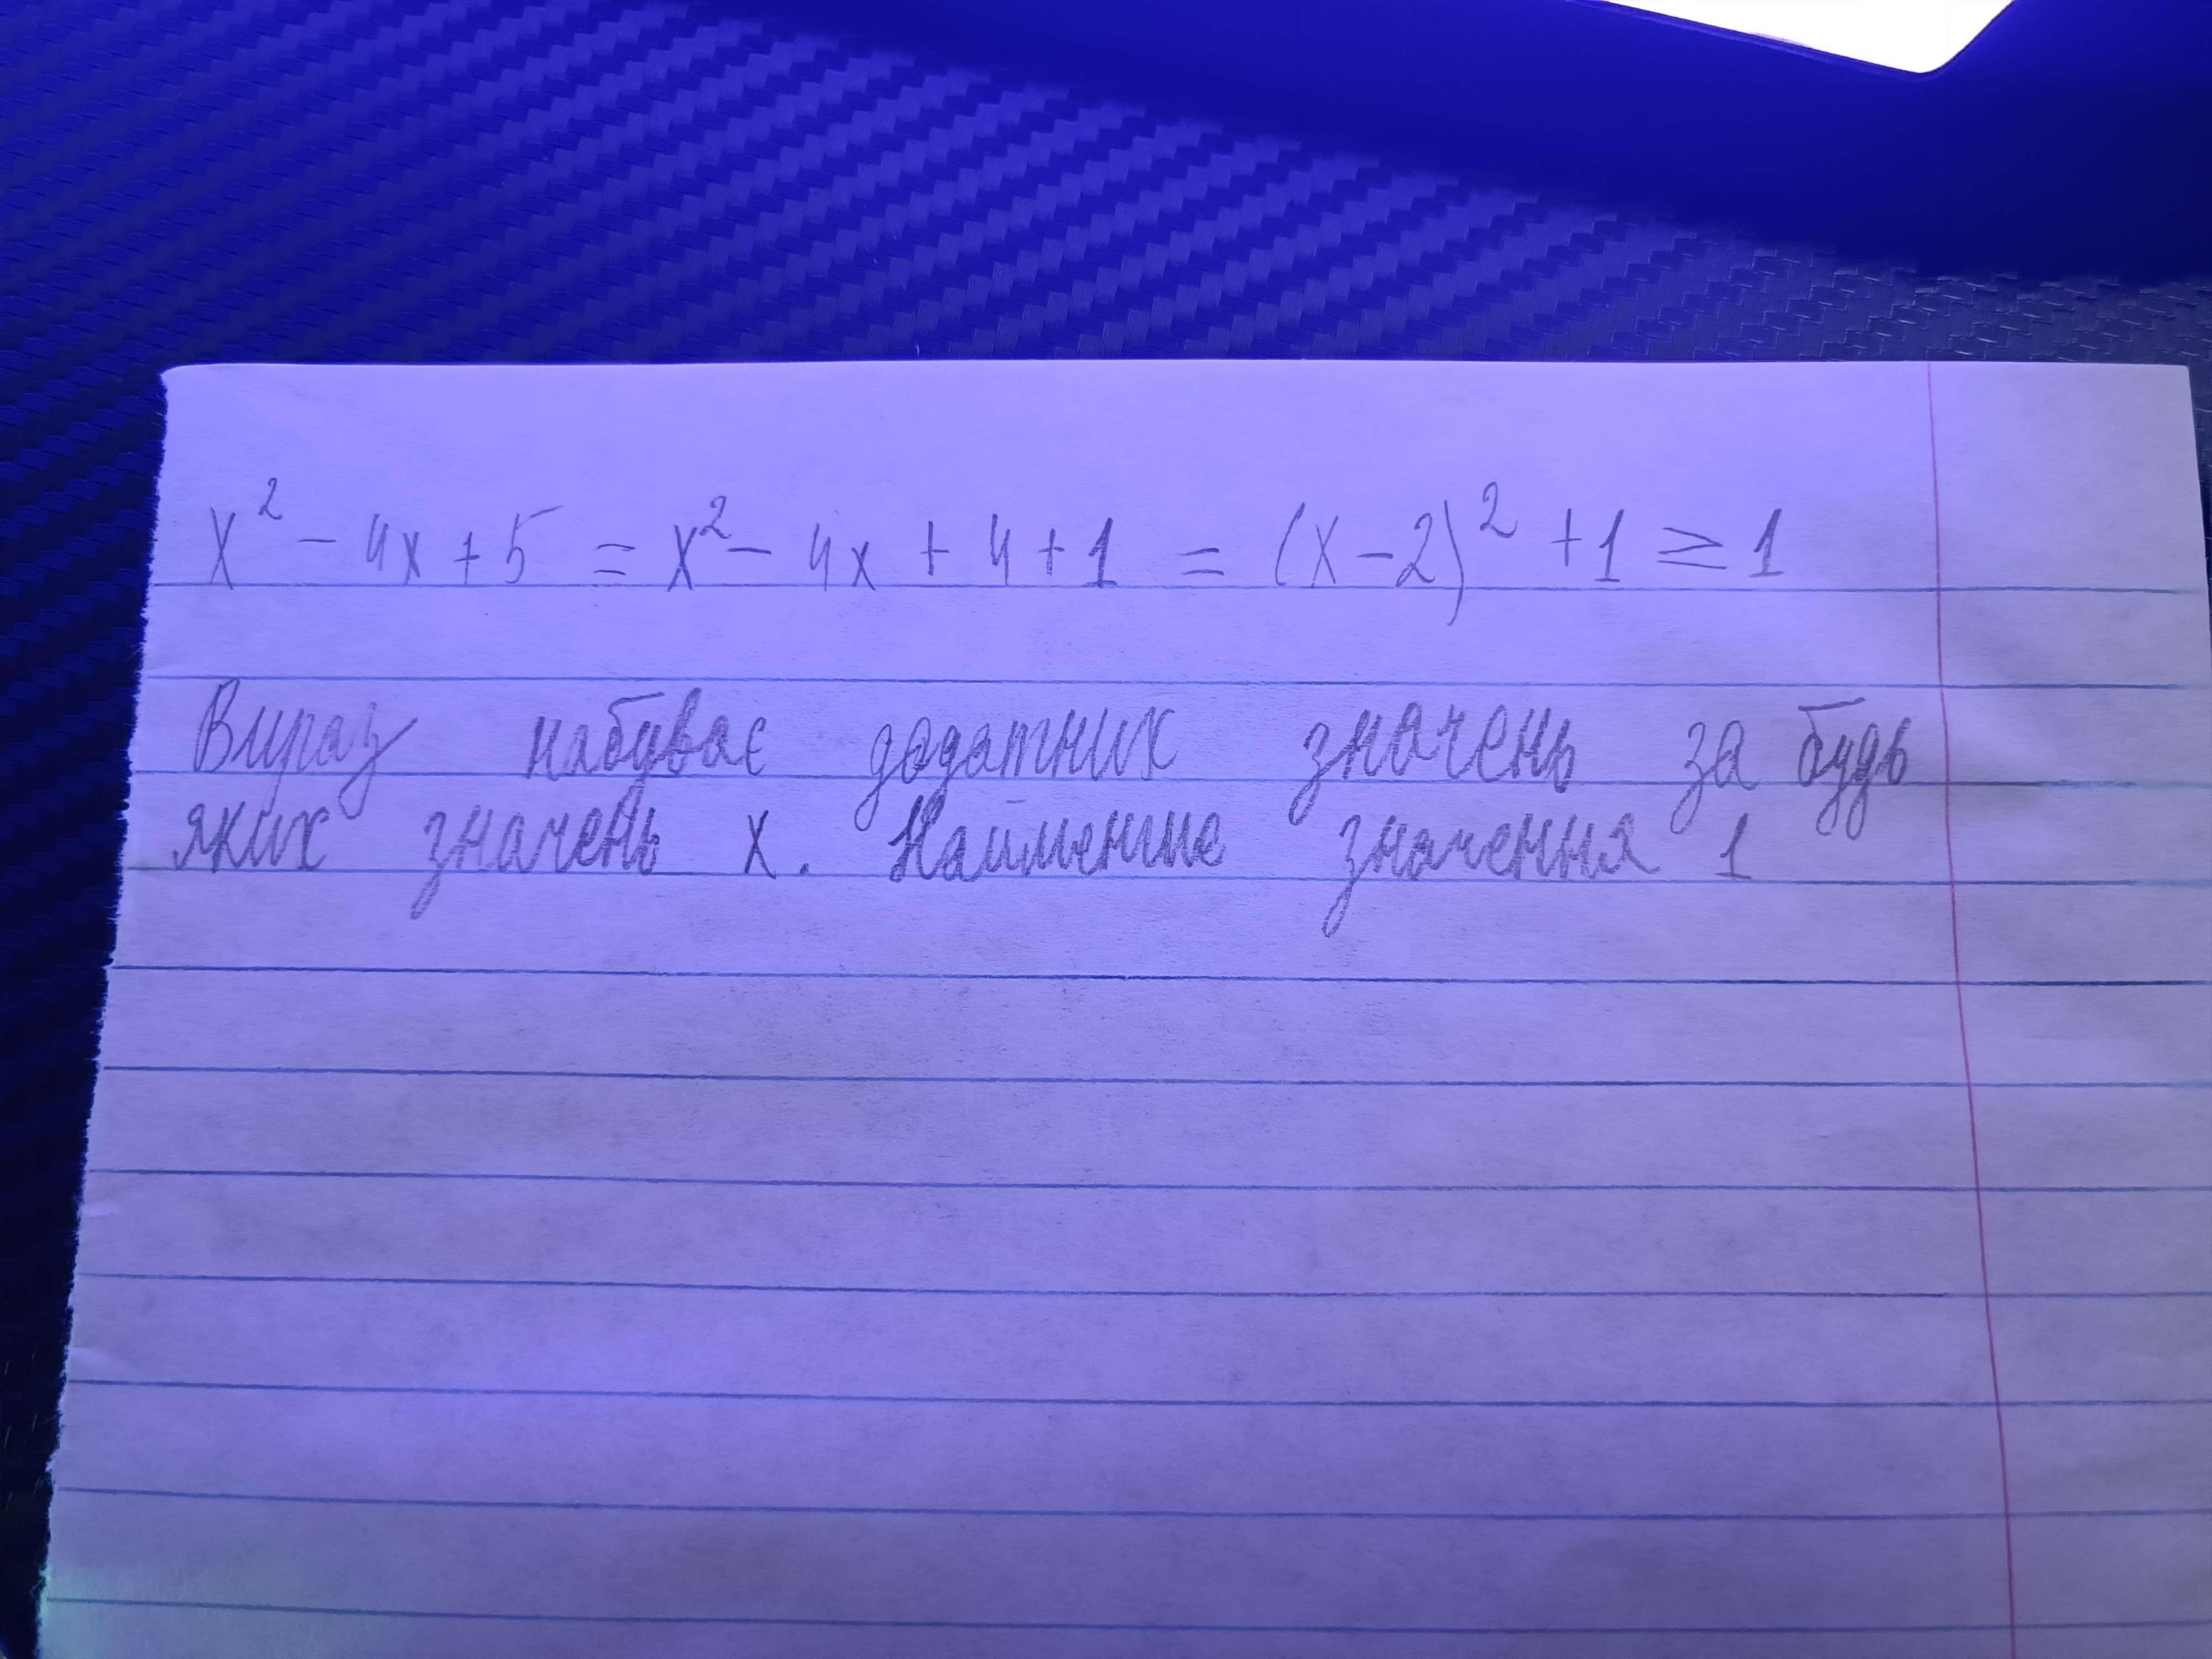 x² - 4x + 5 = x² - 4x + 4 + 1 = (x - 2)² + 1 ≥ 1
Вираз набуває додатних значень за будь
яких значень x. Найменше значення 1